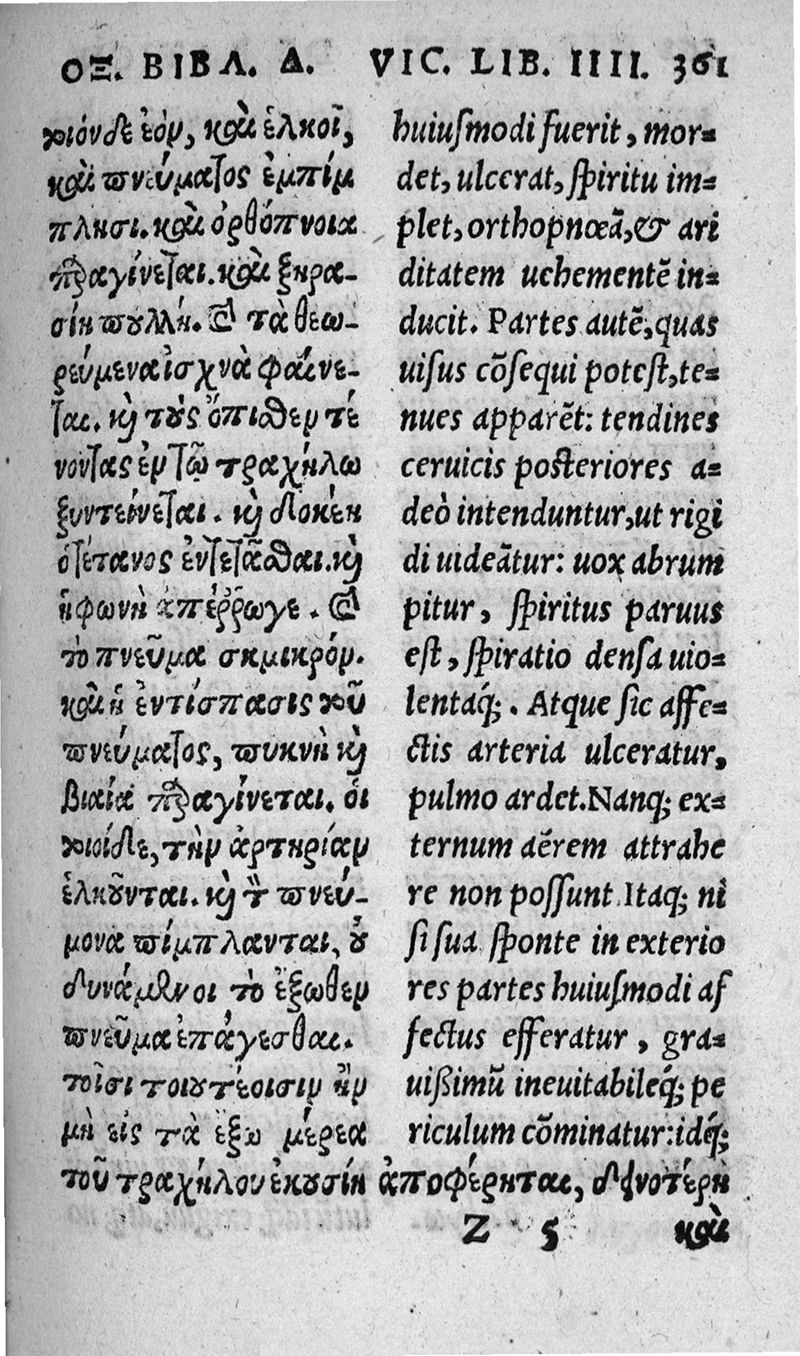 ΟΞ. ΒΙΒΛ. Δ. VIC. LIB. IIII. 361
τοιόνδε ἐὸν, καὶ ἑλκοῖ,
καὶ πνεύματος ἐμπίμ
πλησι. καὶ ὀρθόπνοια
παραγίνεται. καὶ ξηρα-
σίη πουλλή. καὶ τὰ θεω-
ρεύμενα ἰσχνὰ φαίνε-
ται. καὶ τοὺς ὄπισθεν τέ
νοντας ἐν τῷ τραχήλῳ
ξυντείνεται. καὶ δοκέει
ὁ τέτανος ἐντετᾶσθαι. καὶ
ἡ φωνὴ ἀπέῤῥωγε. καὶ
τὸ πνεῦμα σμικρόν.
καὶ ἡ ἐντίσπασις τοῦ
πνεύματος, πυκνὴ καὶ
βιαία παραγίνεται. οἱ
τοιοίδε, τὴν ἀρτηρίαν
ἑλκοῦνται. καὶ τὸν πνεύ-
μονα πίμπλανται, οὐ
δυνάμενοι τὸ ἔξωθεν
πνεῦμα ἐπάγεσθαι.
τοῖσι τουτέοισιν ἢν
μὴ εἰς τὰ ἔξω μέρεα
τοῦ τραχήλου ἑκουσίη ἀποφέρηται, δεινοτέρη
huiuſmodi fuerit, mor-
det, ulcerat, ſpiritu im-
plet, orthopnœā, & ari
ditatem uehementē in-
ducit. Partes autē, quas
uiſus cōſequi poteſt, te-
nues apparēt: tendines
ceruicis poſteriores a-
deò intenduntur, ut rigi
di uideātur: uox abrum
pitur, ſpiritus paruus
eſt, ſpiratio denſa uio-
lentaq́;. Atque ſic affe-
ctis arteria ulceratur,
pulmo ardet. Nanq; ex-
ternum aërem attrahe
re non poſſunt. Itaq; ni
ſi ſua ſponte in exterio
res partes huiuſmodi af
fectus efferatur, gra-
uißimū ineuitabileq́; pe
riculum cōminatur: idq́;
Z 5 καὶ